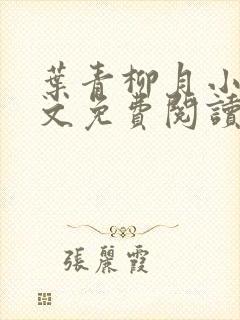 葉青柳月小
文免費閱讀
張麗霞